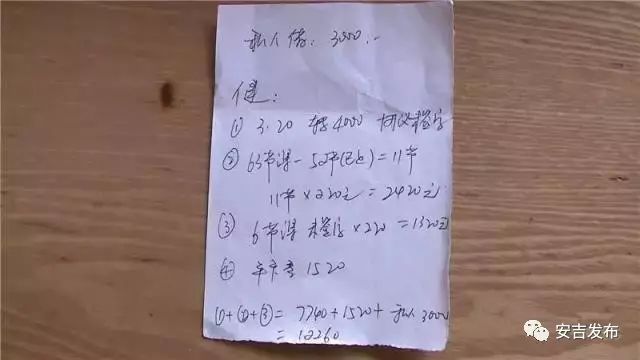 私人借:3000.-
健:
① 3.20 转4000
② 63节课-52节(已上)=11节
11节×220元=2420元
③ 6节课 未签字×220=1320元
④ 1520
①+②+③=7740+1520+私人3000
=12260
安吉发布